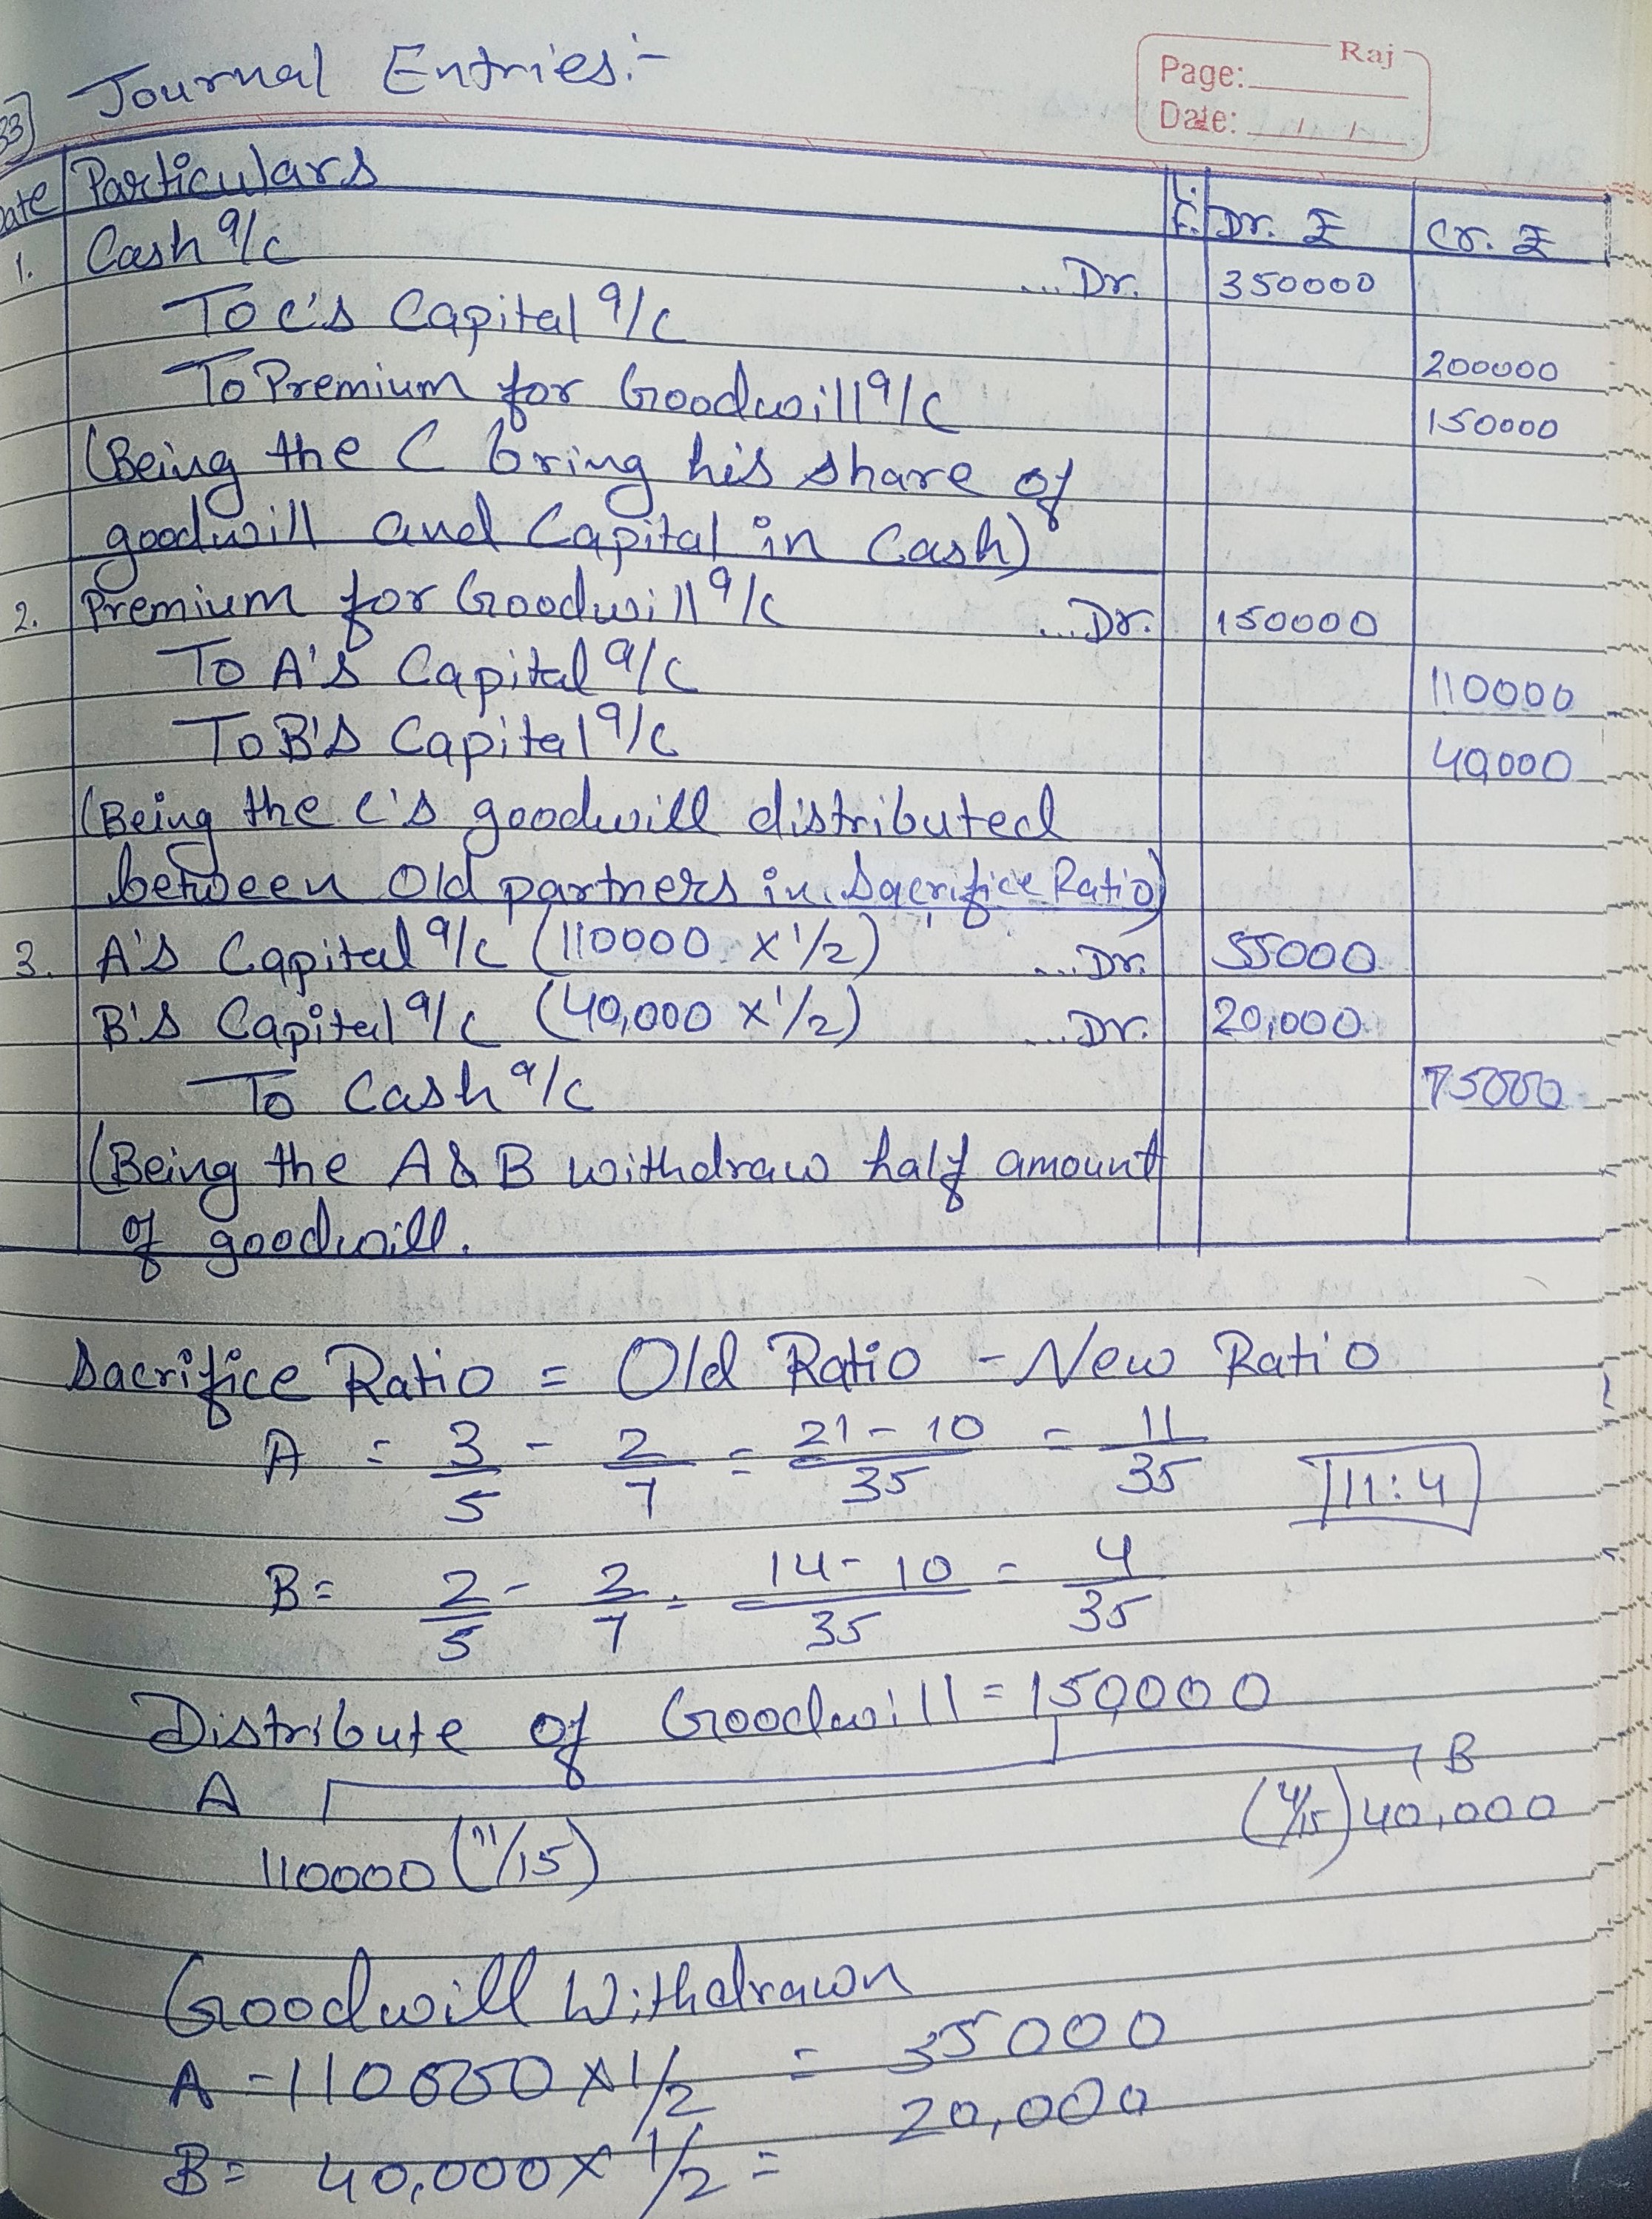 Raj
Page:
Date: / /
33) Journal Entries:-
Date Particulars L.F. Dr. ₹ Cr. ₹
1. Cash a/c ...Dr. 350000
To C's Capital a/c 200000
To Premium for Goodwill a/c 150000
(Being the C bring his share of
goodwill and Capital in Cash)
2. Premium for Goodwill a/c ...Dr. 150000
To A's Capital a/c 110000
To B's Capital a/c 40,000
(Being the C's goodwill distributed
between Old partners in Sacrifice Ratio)
3. A's Capital a/c (110000 x 1/2) ...Dr. 55000
B's Capital a/c (40,000 x 1/2) ...Dr. 20,000
To Cash a/c 75000
(Being the A & B withdraw half amount
of goodwill.
Sacrifice Ratio = Old Ratio - New Ratio
A = 3/5 - 2/7 = 21-10/35 = 11/35 11:4
B = 2/5 - 2/7 = 14-10/35 = 4/35
Distribute of Goodwill = 150,000
A B
110000 (11/15) (4/15) 40,000
Goodwill Withdrawn
A - 110000 x 1/2 = 35000
B = 40,000 x 1/2 = 20,000